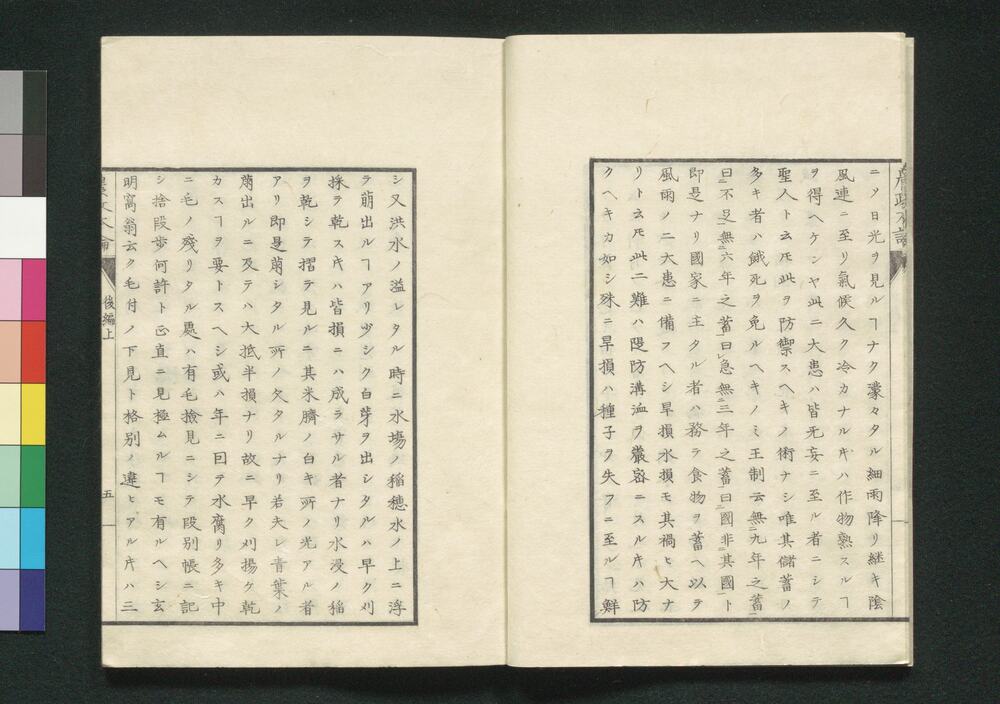 農政本論
ニソ日光ヲ見ルヿナク濛々タル細雨降リ継キ陰
風連ニ至リ氣候久ク冷カナルキハ作物熟スルヿ
ヲ得ヘケンヤ此二大患ハ皆旡妄ニ至ル者ニシテ
聖人ト云𪜈此ヲ防禦スヘキノ術ナシ唯其儲蓄ノ
多キ者ハ餓死ヲ免ルヘキノミ王制云無九年之蓄
曰不足無六年之蓄曰急無三年之蓄曰國非其國ト
即是ナリ國家ニ主タル者ハ務テ食物ヲ蓄ヘ以テ
風雨ノ二大患ニ備フヘシ旱損水損モ其禍ヒ大ナ
リト云𪜈此二難ハ隄防溝洫ヲ嚴密ニスルキハ防
クヘキカ如シ殊ニ旱損ハ種子ヲ失フニ至ルヿ鮮
シ又洪水ノ溢レタル時ニ水場ノ稲穂水ノ上ニ浮
ラ萠出ルヿアリ少シク白芽ヲ出シタルハ早ク刈
採ヲ乾スキハ皆損ニハ成ラサル者ナリ水浸ノ稲
ヲ乾シテ摺テ見ルニ其米臍ノ白キ所ノ光アル者
アリ即是萠シタル所ノ欠タルナリ若夫レ青葉ノ
萠出ルニ及テハ大抵半損ナリ故ニ早ク刈揚ケ乾
カスヿヲ要トスヘシ或ハ年ニ回テ水腐リ多キ中
ニモノ残リタル處ハ有毛撿見ニシテ段別帳ニ記
シ捨段歩何許ト正直ニ見極ムルヿモ有ルヘシ玄
明窩翁云ク毛付ノ下見ト格別ノ違ヒアルキハ三
農政本論
後編上
五